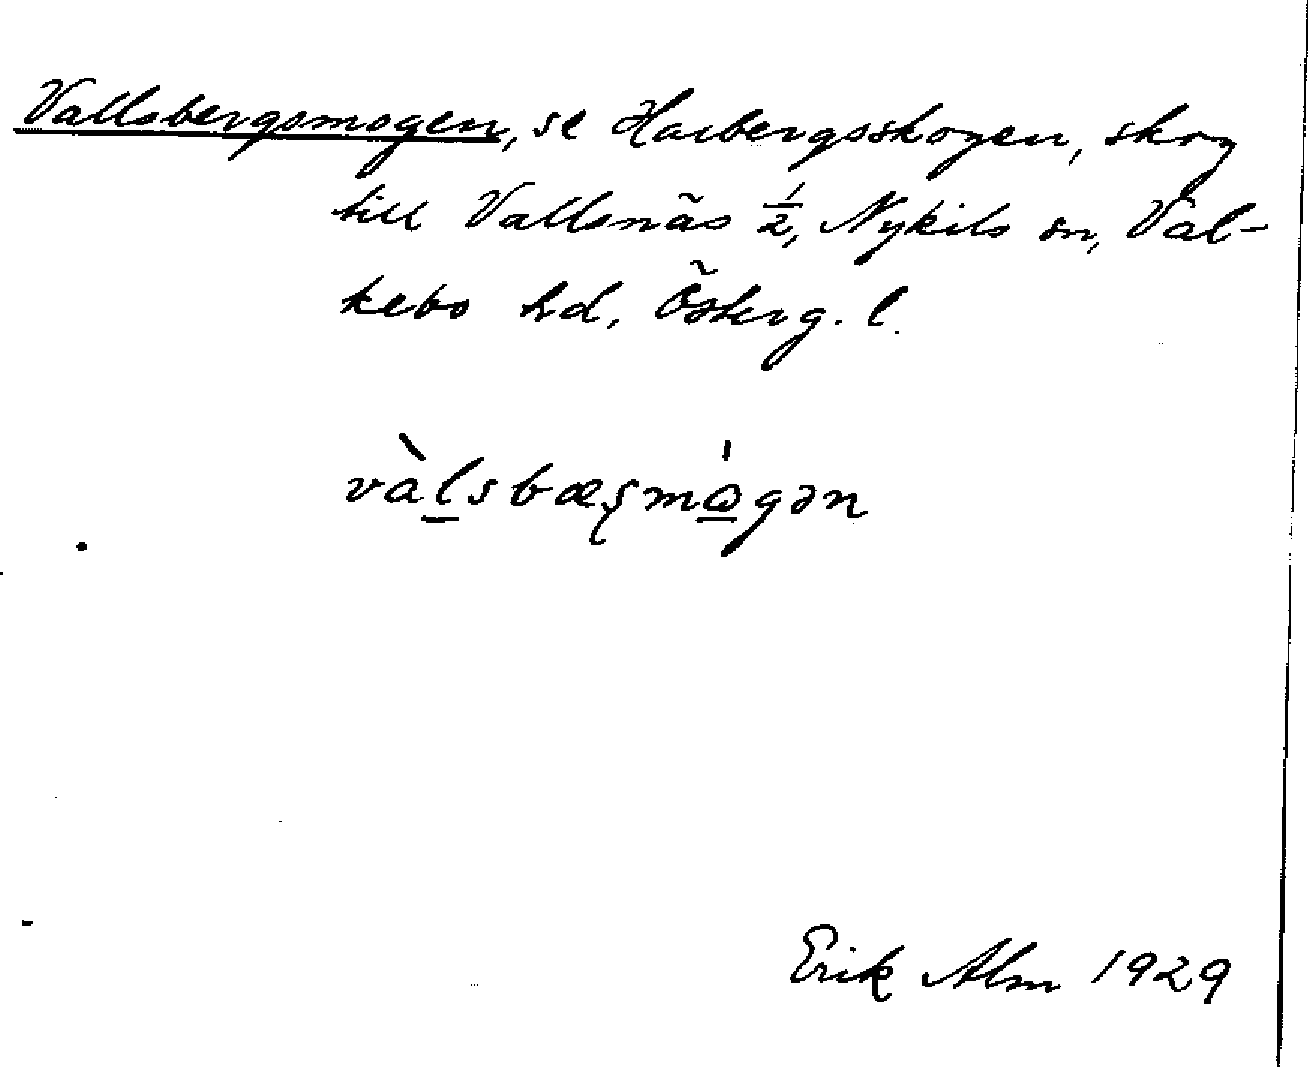 Vallsbergsmogen, se Harbergsskogen, skog
till Vallsnäs ½, Nykils sn, Val-
kebo hd, Österg. l.
vàl̲sbæʂmò̲gən
Erik Alm 1929